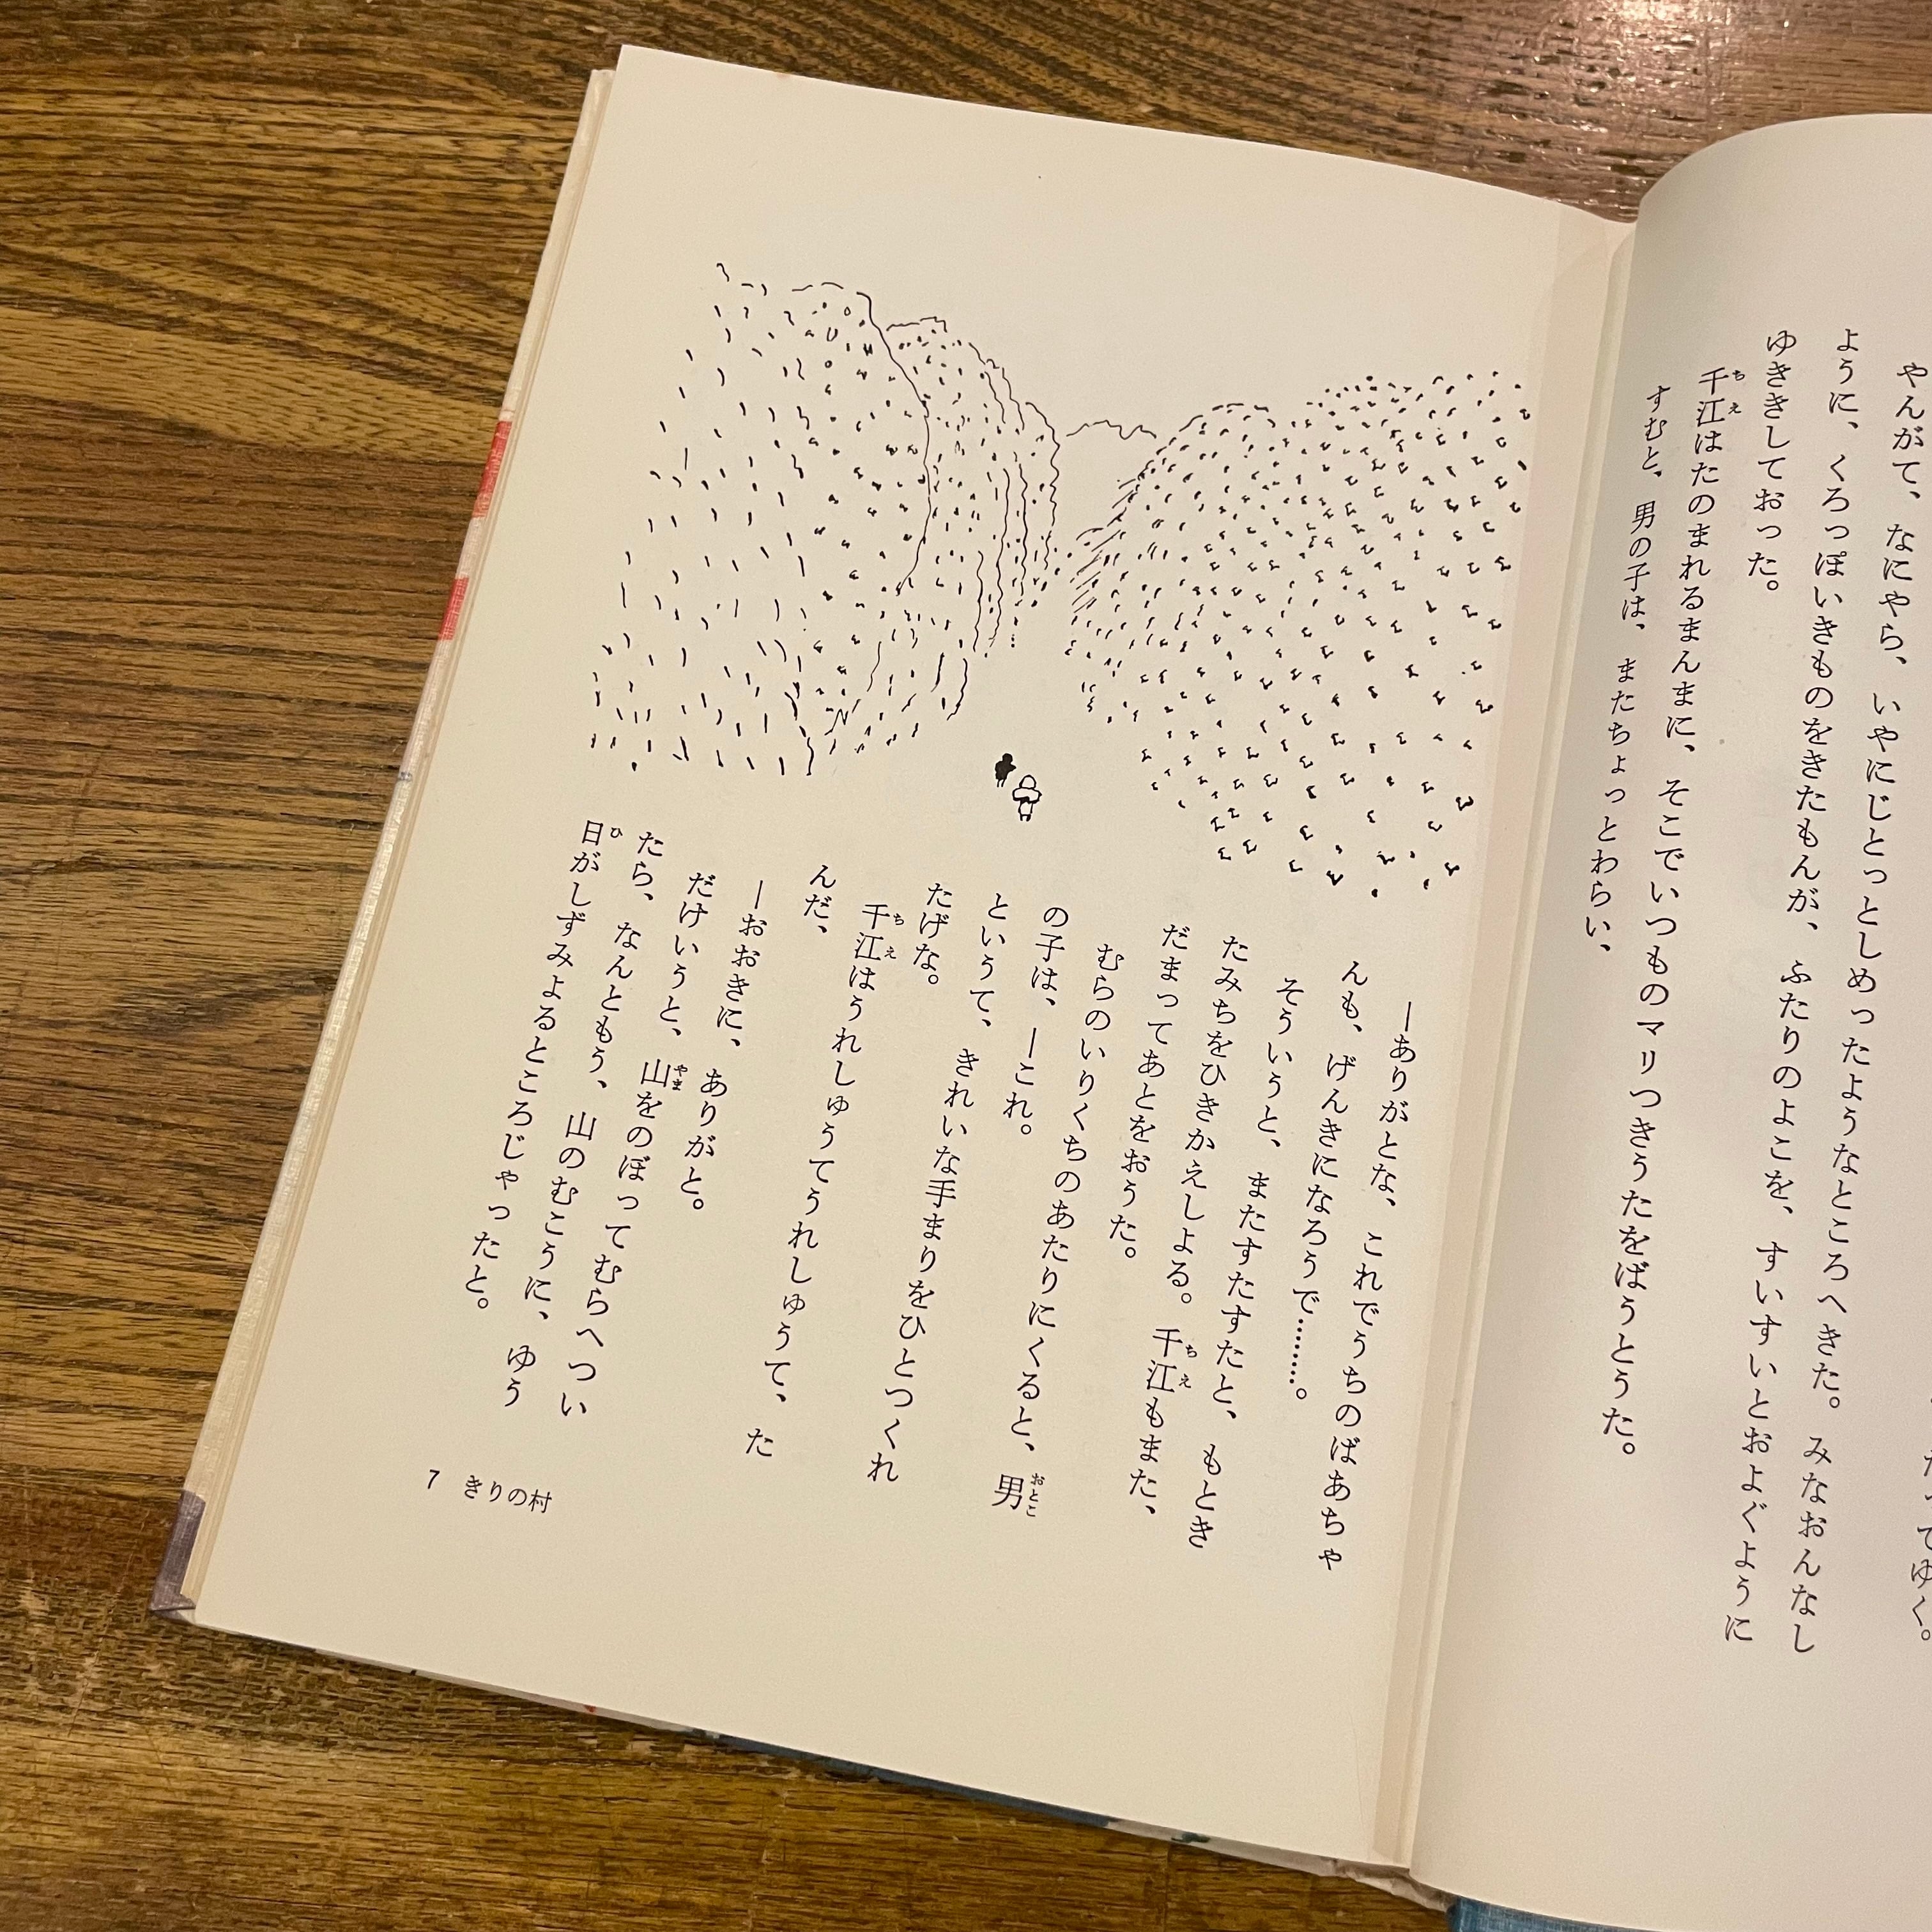 てゆく。
やんがて、なにやら、いやにじとっとしめったようなところへきた。みなおんなし
ように、くろっぽいきものをきたもんが、ふたりのよこを、すいすいとおよぐように
ゆききしておった。
ちえ
千江はたのまれるまんまに、そこでいつものマリつきうたをばうとうた。
すむと、男の子は、またちょっとわらい、
―ありがとな、これでうちのばあちゃ
んも、げんきになろうで………。
そういうと、またすたすたと、もとき
たみちをひきかえしよる。千江もまた、
ちえ
だまってあとをおうた。
むらのいりくちのあたりにくると、男
おとこ
の子は、―これ。
というて、きれいな手まりをひとつくれ
たげな。
ちえ
千江はうれしゅうてうれしゅうて、た
んだ、
―おおきに、ありがと。
だけいうと、山をのぼってむらへつい
やま
たら、なんともう、山のむこうに、ゆう
ひ
日がしずみよるところじゃったと。
7 きりの村